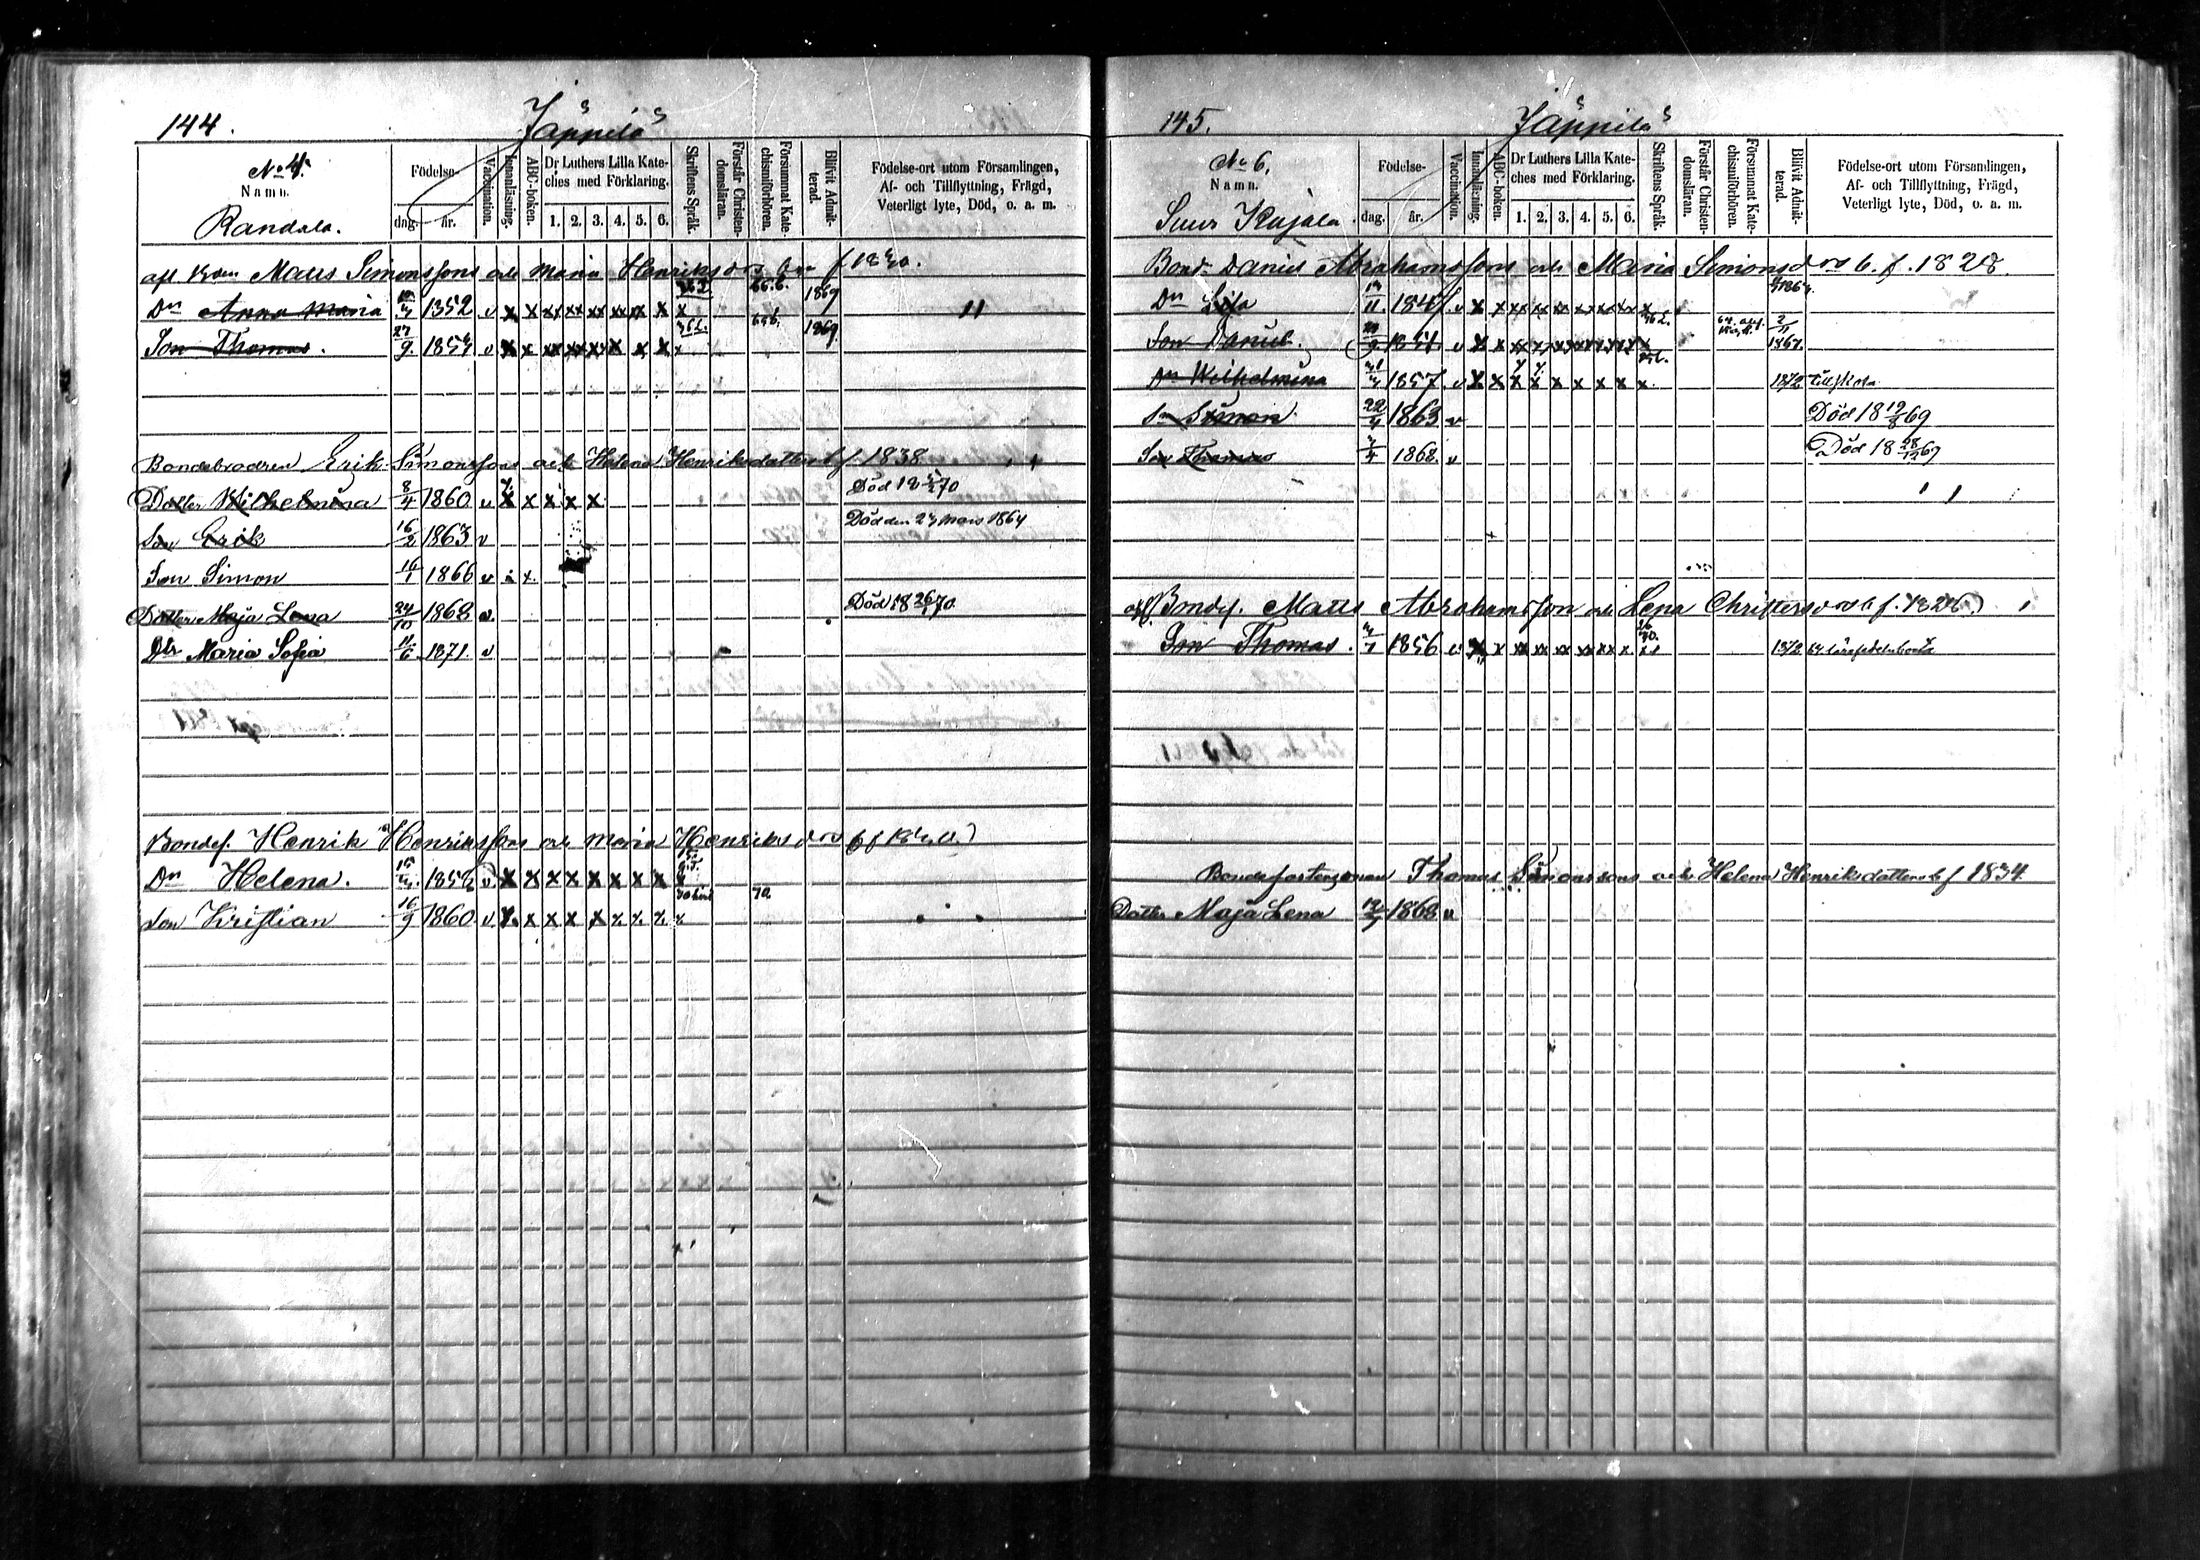 144.
Jäppilä
No 4.
Namn.
Randala.
Födelse-
dag. år.
Vaccination.
Innanläsning.
ABC-boken.
Dr Luthers Lilla Kate-
ches med Förklaring.
1. 2. 3. 4. 5. 6.
Skriftens Språk.
Förstår Christen-
domsläran.
Försummat Kate-
chismiförhören.
Blivit Admit-
terad.
Födelse-ort utom Församlingen,
Af- och Tillflyttning, Frägd,
Veterligt lyte, Död, o. a. m.
Matts Simonssons och Maria Henriksdrs
Dn Anna Maria 1852 v x x xx xx xx xx x x 66.6. 1869
Son Thomas. 27/9. v x x xx xx xx x x x x 1869
Bondebrodren Erik Simonssons och Helena Henriksdatters b f 1838
Dotter Wilhelmina 8/4 1860 v x x x x x Död 18 70
Son Erik 16/2 1863 v Död den 23 Mars 1864
Son Simon 16/1 1866 v x.
Dotter Maja Lena 24/10 1868 v. Död 18 26/1 70
Dtr Maria Sofia 11/6 1871. v
Bondef. Henrik Henrikssons och Maria Henriksdrs b f
Dn Helena. v. x x x x x x x x
Son Kristian 16/9 1860 v x x x x x x x x x 70
145.
Jäppilä
No 6.
Namn.
Suur Kujala.
Födelse-
dag. år.
Vaccination.
Innanläsning.
ABC-boken.
Dr Luthers Lilla Kate-
ches med Förklaring.
1. 2. 3. 4. 5. 6.
Skriftens Språk.
Förstår Christen-
domsläran.
Försummat Kate-
chismiförhören.
Blivit Admit-
terad.
Födelse-ort utom Församlingen,
Af- och Tillflyttning, Frägd,
Veterligt lyte, Död, o. a. m.
Bond. Daniel Abrahamssons och Maria Simonsdrs b. f. 1828.
Dn Lisa v x x xx xx xx xx xx xx x
Son Daniel. v x x xx xx xx xx xx xx x 2/11 1867.
Dn Wilhelmina 1857. v x x x x x x x x x. 1872
Sn Simon 22/4 1863 v Död 18 19/8 69
Son Thomas 1868. v Död 18 28/12 69
Bondef. Matts Abrahamsson och Lena Christersdrs b f.
Son Thomas. 1856 v x x xx xx xx xx xx x. 1872
Thomas Simonssons och Helena Henriksdatters b f 1834
Dotter Maja Lena 1868 v